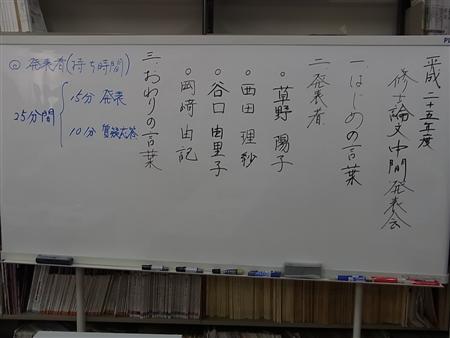 平成二十五年度
修士論文中間発表会
一.はじめの言葉
二.発表者
○草野 陽子
○西田 理紗
○谷口 由里子
○岡﨑 由記
三.おわりの言葉
◎発表者(持ち時間)
25分間
15分 発表
10分 質疑応答